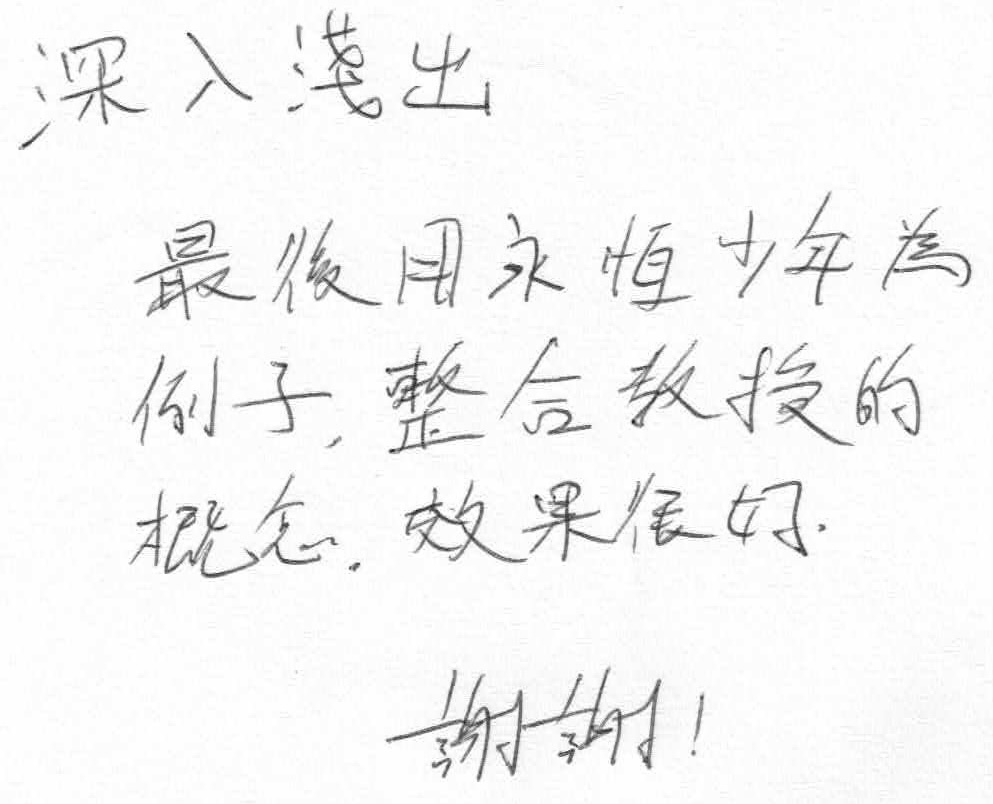 深入淺出
最後用永恒少年為
例子,整合教授的
概念,效果很好.
謝謝!